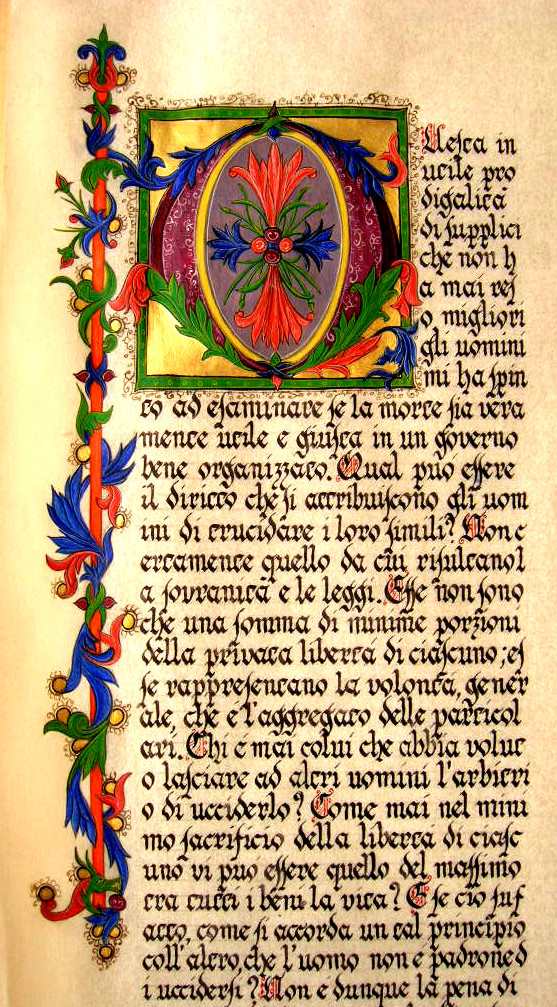 Questa in
utile pro
digalità
di supplici
che non h
a mai res
o migliori
gli uomini
mi ha spin
to ad esaminare se la morte sia vera
mente utile e giusta in un governo
bene organizzato. Qual può essere
il diritto che si attribuiscono gli uom
ini di trucidare i loro simili? Non c
ertamente quello da cui risultano l
a sovranità e le leggi. Esse non sono
che una somma di minime porzioni
della privata libertà di ciascuno; es
se rappresentano la volontà gener
ale, che è l'aggregato delle particol
ari. Chi è mai colui che abbia volut
o lasciare ad altri uomini l'arbitri
o di ucciderlo? Come mai nel mini
mo sacrificio della libertà di ciasc
uno vi può essere quello del massimo
tra tutti i beni la vita? E se ciò fuf
atto, come si accorda un tal principio
coll'altro, che l'uomo non è padrone d
i uccidersi? Non è dunque la pena di